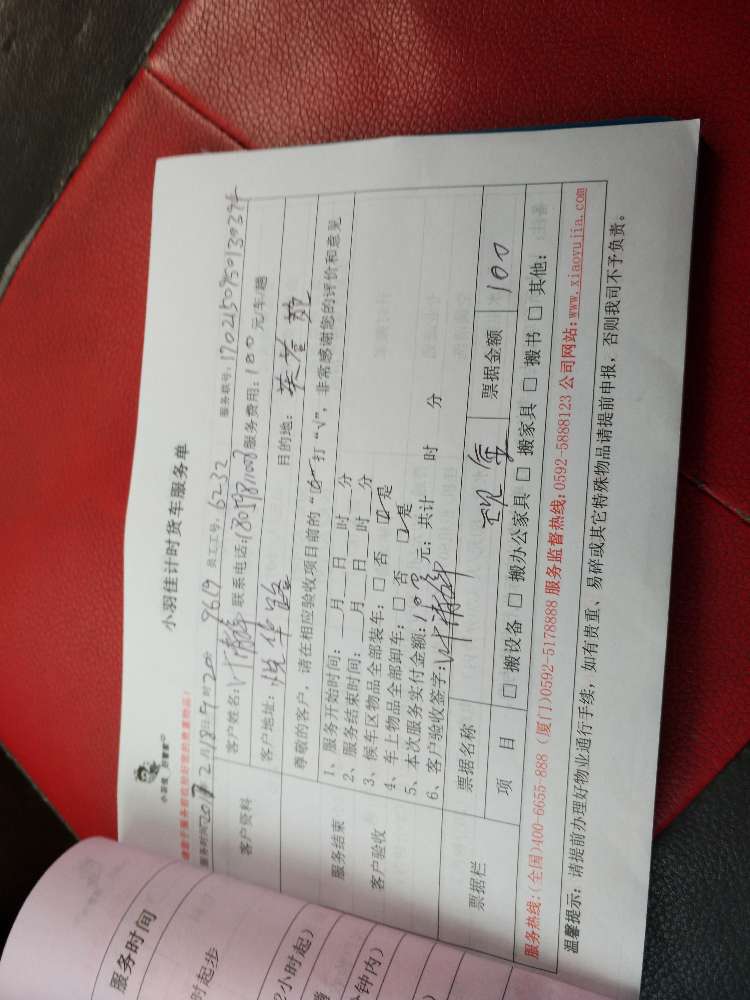 小羽佳计时货车服务单
小羽佳 好管家
服务时间:2017 2月18日9时20 9619 员工工号:6232 服务牌号:
客户资料
客户姓名:叶 联系电话: 服务费用:180 元/车/趟
客户地址:悦华路 目的地:
尊敬的客户,请在相应验收项目前的“□”打“√”,非常感谢您的评价和意见
服务结束
客户验收
1、服务开始时间:__月__日__时__分
2、服务结束时间:__月__日__时__分
3、候车区物品全部装车:□ 否 ☑是
4、车上物品全部卸车:□ 否 ☑是
5、本次服务实付金额: 元;共计 时 分
6、客户验收签字:叶
票据栏
票据名称 现金 票据金额 100
项 目 □ 搬设备 □ 搬办公家具 □ 搬家具 □ 搬书 □ 其他:
服务热线:(全国)400-6655-888 (厦门)0592-5178888 服务监督热线:0592-5888123 公司网站:www.xiaoyujia.com
温馨提示:请提前办理好物业通行手续,如有贵重、易碎或其它特殊物品请提前申报,否则我司不予负责。
服务时间
时起步
2小时起)
分钟内)